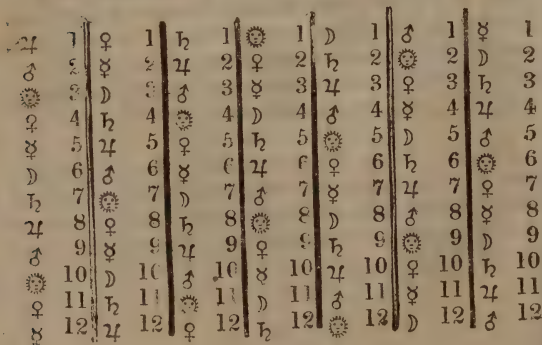 ♃ 1 ♀ 1 ♄ 1 ☉ 1 ☽ 1 ♂ 1 ☿ 1
♂ 2 ☿ 2 ♃ 2 ♀ 2 ♄ 2 ☉ 2 ☽ 2
☉ 3 ☽ 3 ♂ 3 ☿ 3 ♃ 3 ♀ 3 ♄ 3
♀ 4 ♄ 4 ☉ 4 ☽ 4 ♂ 4 ☿ 4 ♃ 4
☿ 5 ♃ 5 ♀ 5 ♄ 5 ☉ 5 ☽ 5 ♂ 5
☽ 6 ♂ 6 ☿ 6 ♃ 6 ♀ 6 ♄ 6 ☉ 6
♄ 7 ☉ 7 ☽ 7 ♂ 7 ☿ 7 ♃ 7 ♀ 7
♃ 8 ♀ 8 ♄ 8 ☉ 8 ☽ 8 ♂ 8 ☿ 8
♂ 9 ☿ 9 ♃ 9 ♀ 9 ♄ 9 ☉ 9 ☽ 9
☉ 10 ☽ 10 ♂ 10 ☿ 10 ♃ 10 ♀ 10 ♄ 10
♀ 11 ♄ 11 ☉ 11 ☽ 11 ♂ 11 ☿ 11 ♃ 11
☿ 12 ♃ 12 ♀ 12 ♄ 12 ☉ 12 ☽ 12 ♂ 12